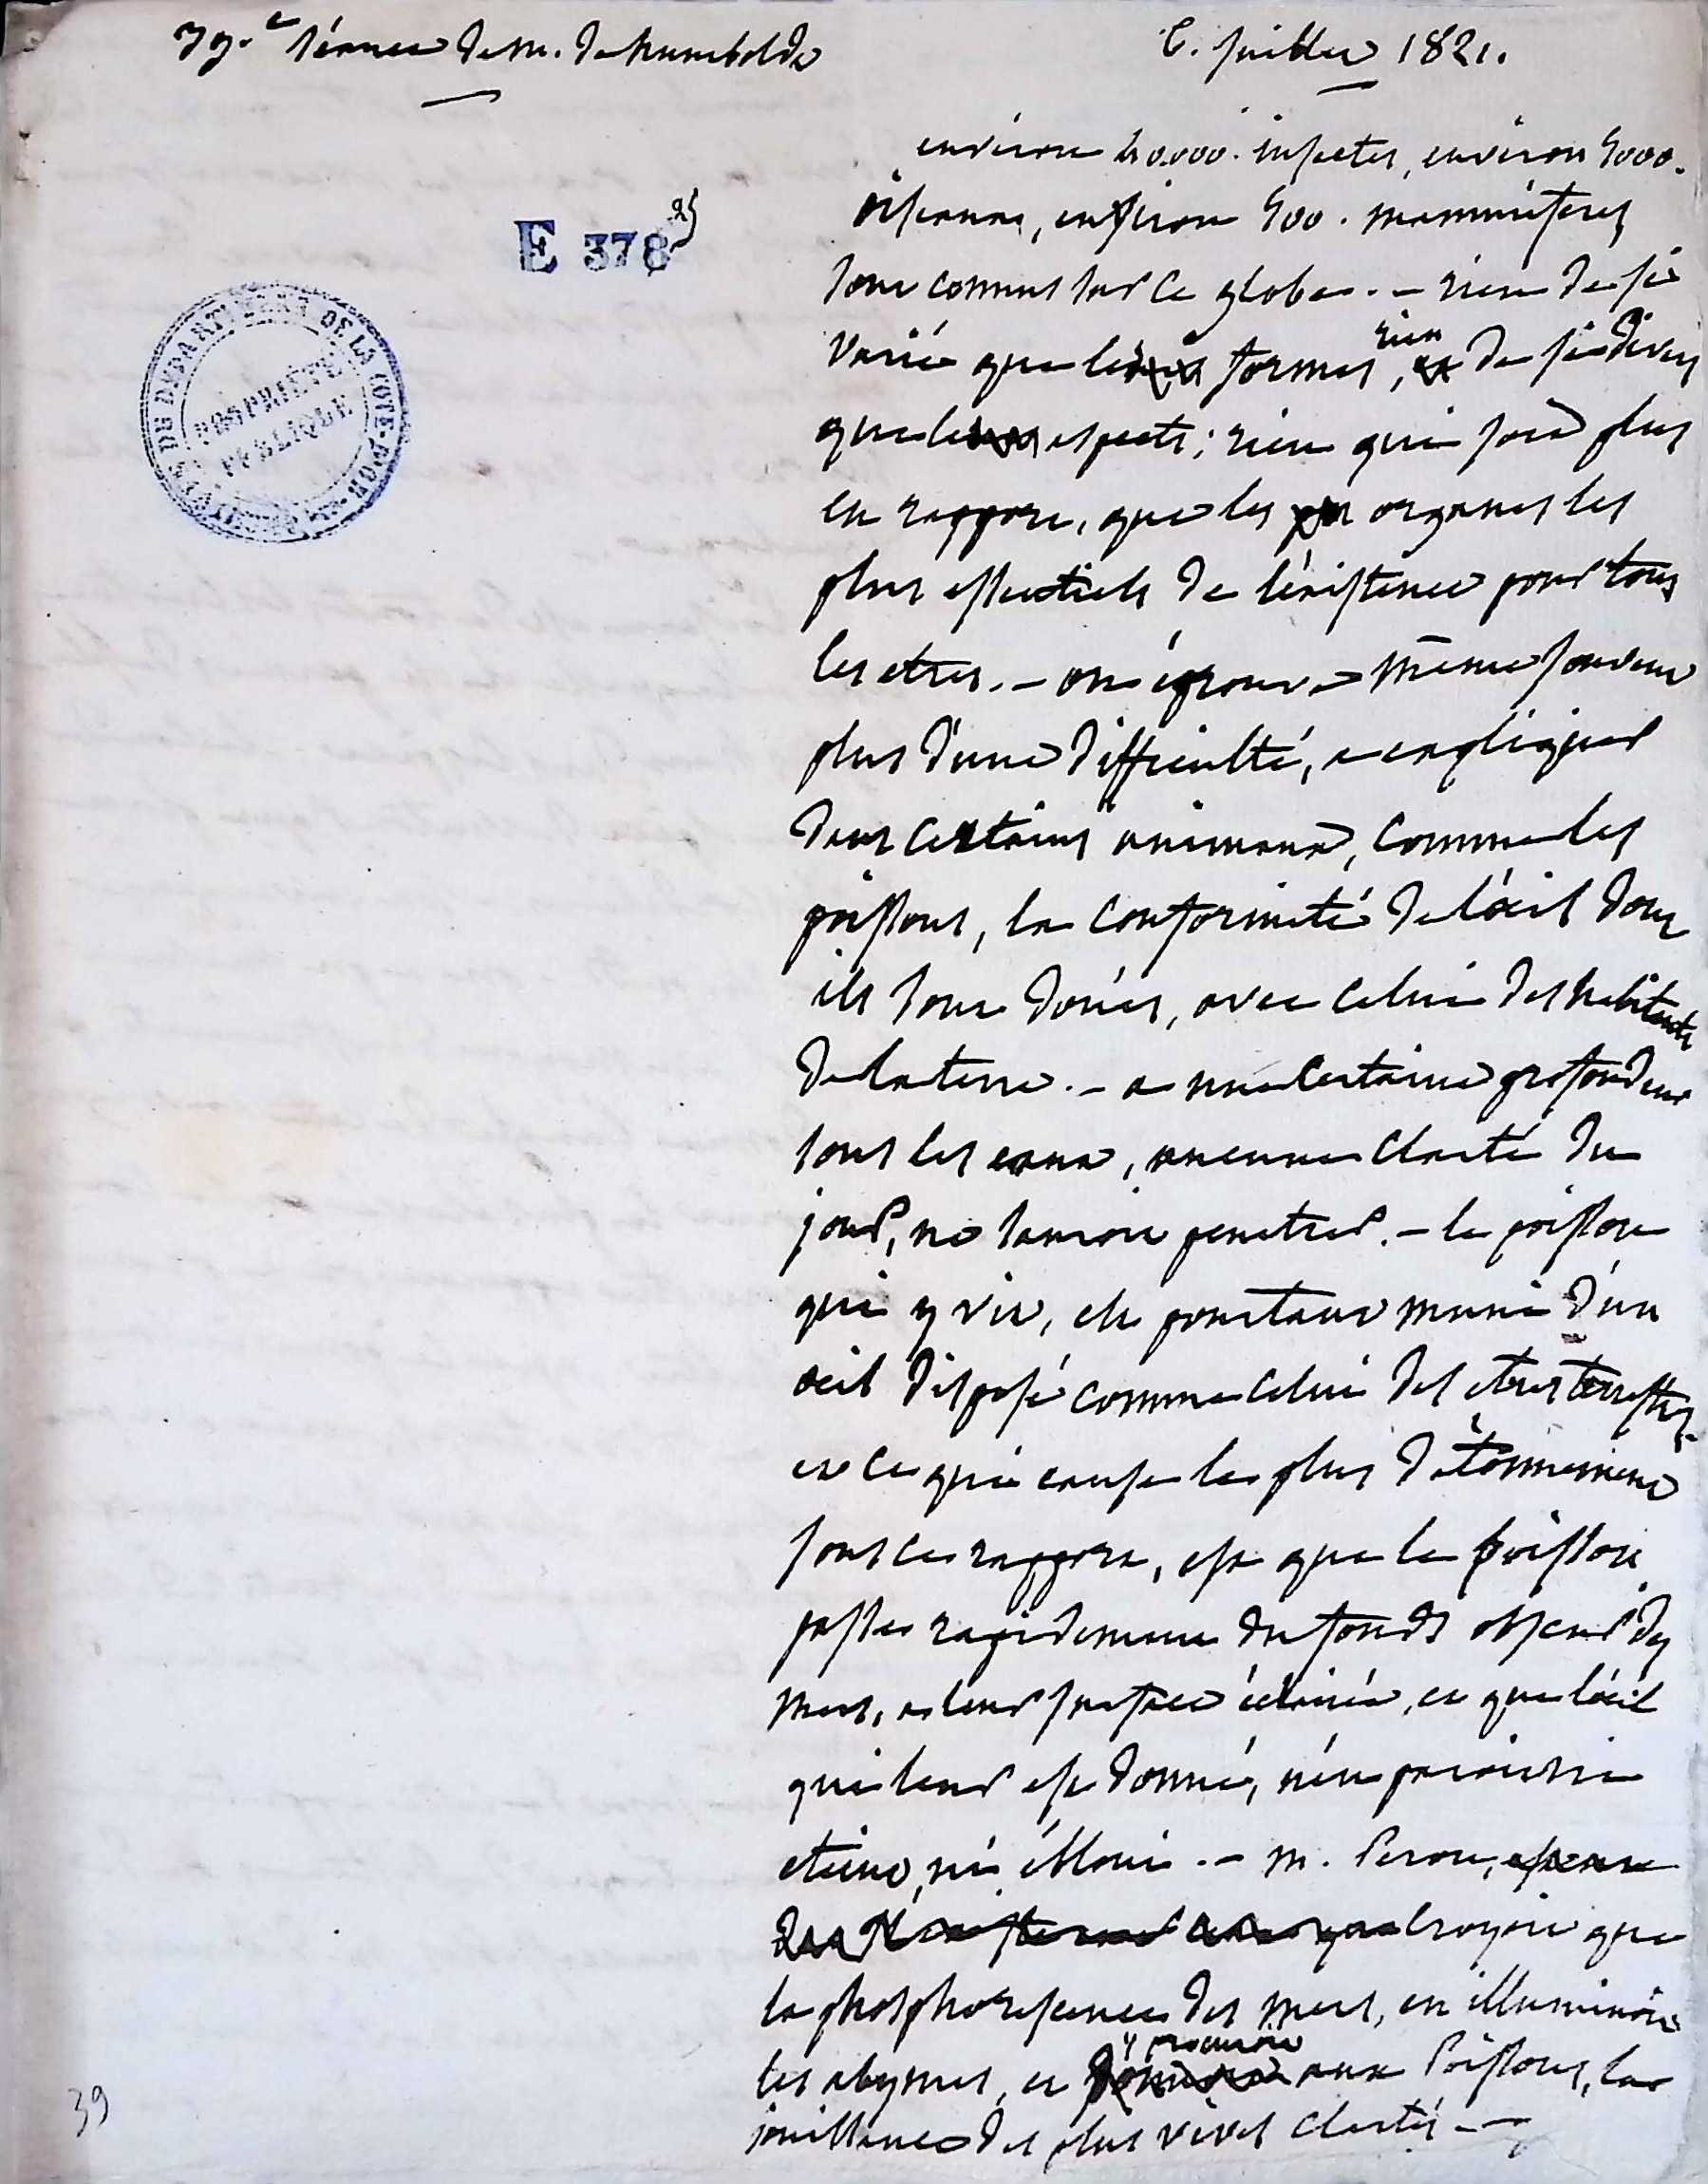 39.e séance de m. de humboldt
6. juillet 1821.
E 378 25
ARCHIVES DU DÉPARTEMENT DE LA CÔTE-D'OR
PROPRIÉTÉ PUBLIQUE
environ 40.000. insectes, environ 4000.
oiseaux, environ 500. mammiferes
sont connus sur ce globe. - rien de si
varié que les formes, rien de si divers
que les aspects; rien qui soit plus
en rapport, que les organes les
plus essentiels de l'existence pour tous
les etres. - on éprouve même souvent
plus d'une difficulté, a expliquer
dans certains animaux, comme les
poissons, la conformité de l'oeil dont
ils sont doués, avec celui des habitants
de la terre. - a une certaine profondeur
sous les eaux, aucune clarté du
jour, ne sauroit penetrer. - le poisson
qui y vit, est pourtant muni d'un
oeil disposé comme celui des etres terrestres.
et ce qui cause le plus d'étonnement
sous ce rapport, est que le poisson
passe rapidement du fonds obscur des
mers, a leur surface éclairée, et que l'oeil
qui leur est donné, n'en paroit ni
eteint, ni ébloui. - m. Peron,
croyoit que
la phosphorescence des mers, en illuminoit
les abymes, et y procuroit aux poissons, la
jouissance des plus vives clartés. -
39